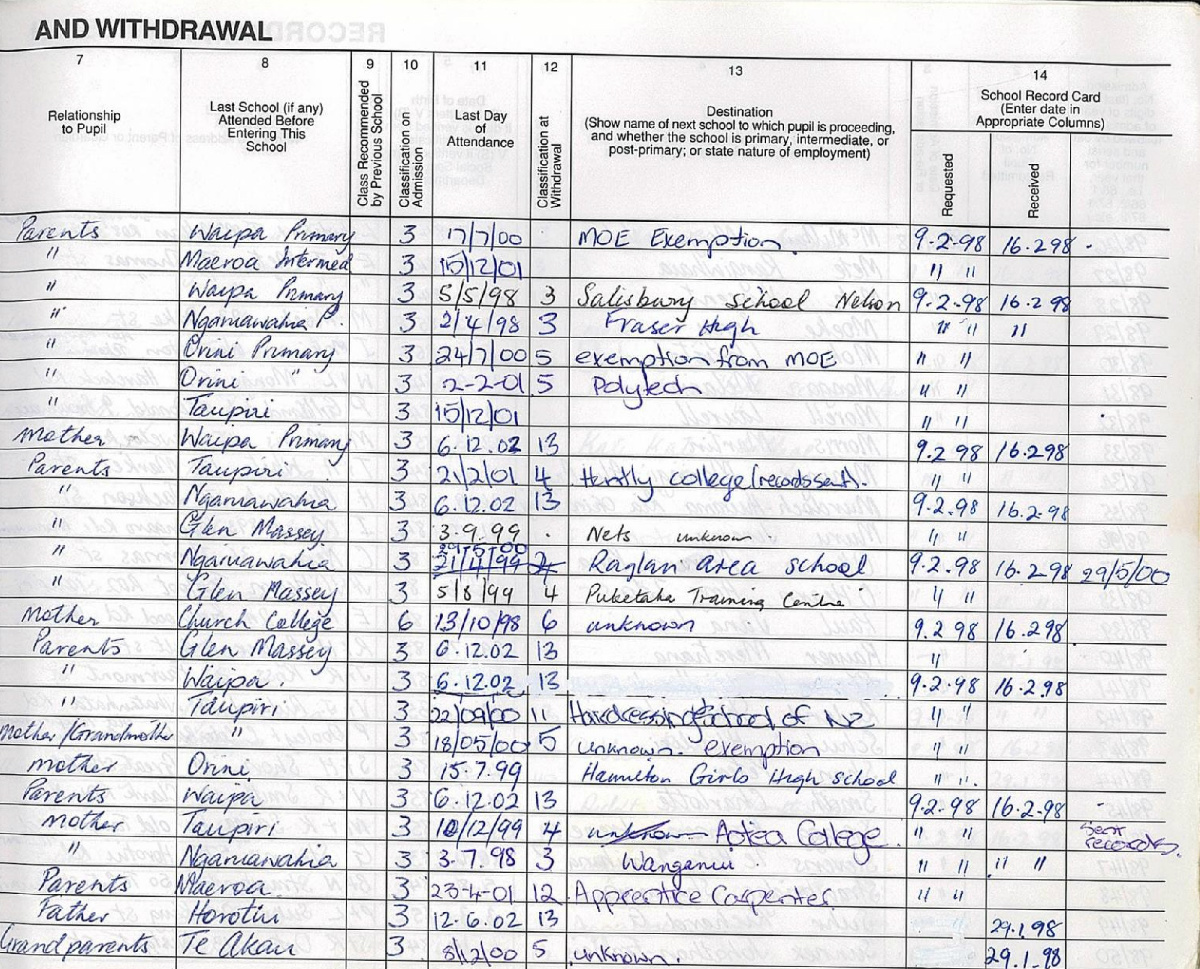 AND WITHDRAWAL
7 8 9 10 11 12 13 14
Relationship to Pupil
Last School (if any) Attended Before Entering This School
Class Recommended by Previous School
Classification on Admission
Last Day of Attendance
Classification at Withdrawal
Destination
(Show name of next school to which pupil is proceeding, and whether the school is primary, intermediate, or post-primary; or state nature of employment)
School Record Card
(Enter date in Appropriate Columns)
Requested
Received
Parents Waipa Primary 3 17/7/00 MOE Exemption 9-2-98 16.298
" Maeroa Intermed 3 15/12/01 " "
" Waipa Primary 3 5/5/98 3 Salisbury School Nelson 9-2-98 16-2 98
" Ngaruawahia P. 3 2/4/98 3 Fraser High " " "
" Orini Primary 3 24/7/00 5 exemption from MOE " "
" Orini " 3 2-2-01 5 Polytech " "
" Taupiri 3 15/12/01 " "
Mother Waipa Primary 3 6.12.02 13 9.2 98 16.298
Parents Taupiri 3 21/2/01 4 Huntly college (records sent). " "
" Ngaruawahia 3 6.12.02 13 9.2.98 16.2.98
" Glen Massey 3 3.9.99 . Nets unknown " "
" Ngaruawahia 3 29-5-00 21/4/99 Raglan Area school 9.2.98 16.2 98 29/5/00
" Glen Massey 3 5/8/99 4 Puketaha Training Centre " "
Mother Church College 6 13/10/98 6 unknown 9.2 98 16.298
Parents Glen Massey 3 6.12.02 13 "
" Waipa. 3 6.12.02 13 9-2-98 16-2.98
" Taupiri 3 22/09/00 11 Hairdressing School of NZ " "
Mother/Grandmother " 3 18/05/00 5 unknown. exemption " "
Mother Orini 3 15.7.99 Hamilton Girls High School " "
Parents Waipa 3 6.12.02 13 9-2-98 16-2-98
Mother Taupiri 3 10/12/99 4 unknown Aotea College. " " Sent records.
" Ngaruawahia 3 3.7.98 3 Wanganui " " " "
Parents Maeroa 3 23-4-01 12 Apprentice Carpenter " "
Father Horotiu 3 12.6.02 13 29.1.98
Grandparents Te Akau 3 8/12/00 5 unknown. 29.1.98